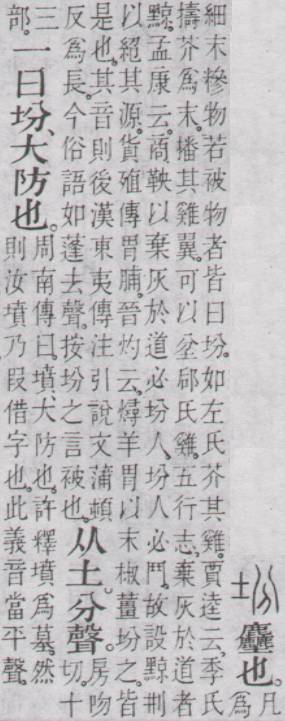 坋 塵也。凡為
細末糝物若被物者皆曰坋。如左氏芥其雞。賈逵云、季氏
擣芥為末。播其雞翼。可以坌郈氏雞。五行志、棄灰於道者
黥。孟康云。商鞅以棄灰於道必坋人、坋人必鬥。故設黥刑
以絕其源。貨殖傳胃脯。晉灼云、燖羊胃以末椒薑坋之。皆
是也。其音則後漢東夷傳注引說文蒲頓
反為長。今俗語如蓬去聲。按坋之言被也。
从土。分聲。
房吻
切。十
三
部。
一曰坋、大防也。
周南傳曰、墳、大防也。許釋墳為墓。然
則汝墳乃叚借字也。此義音當平聲。